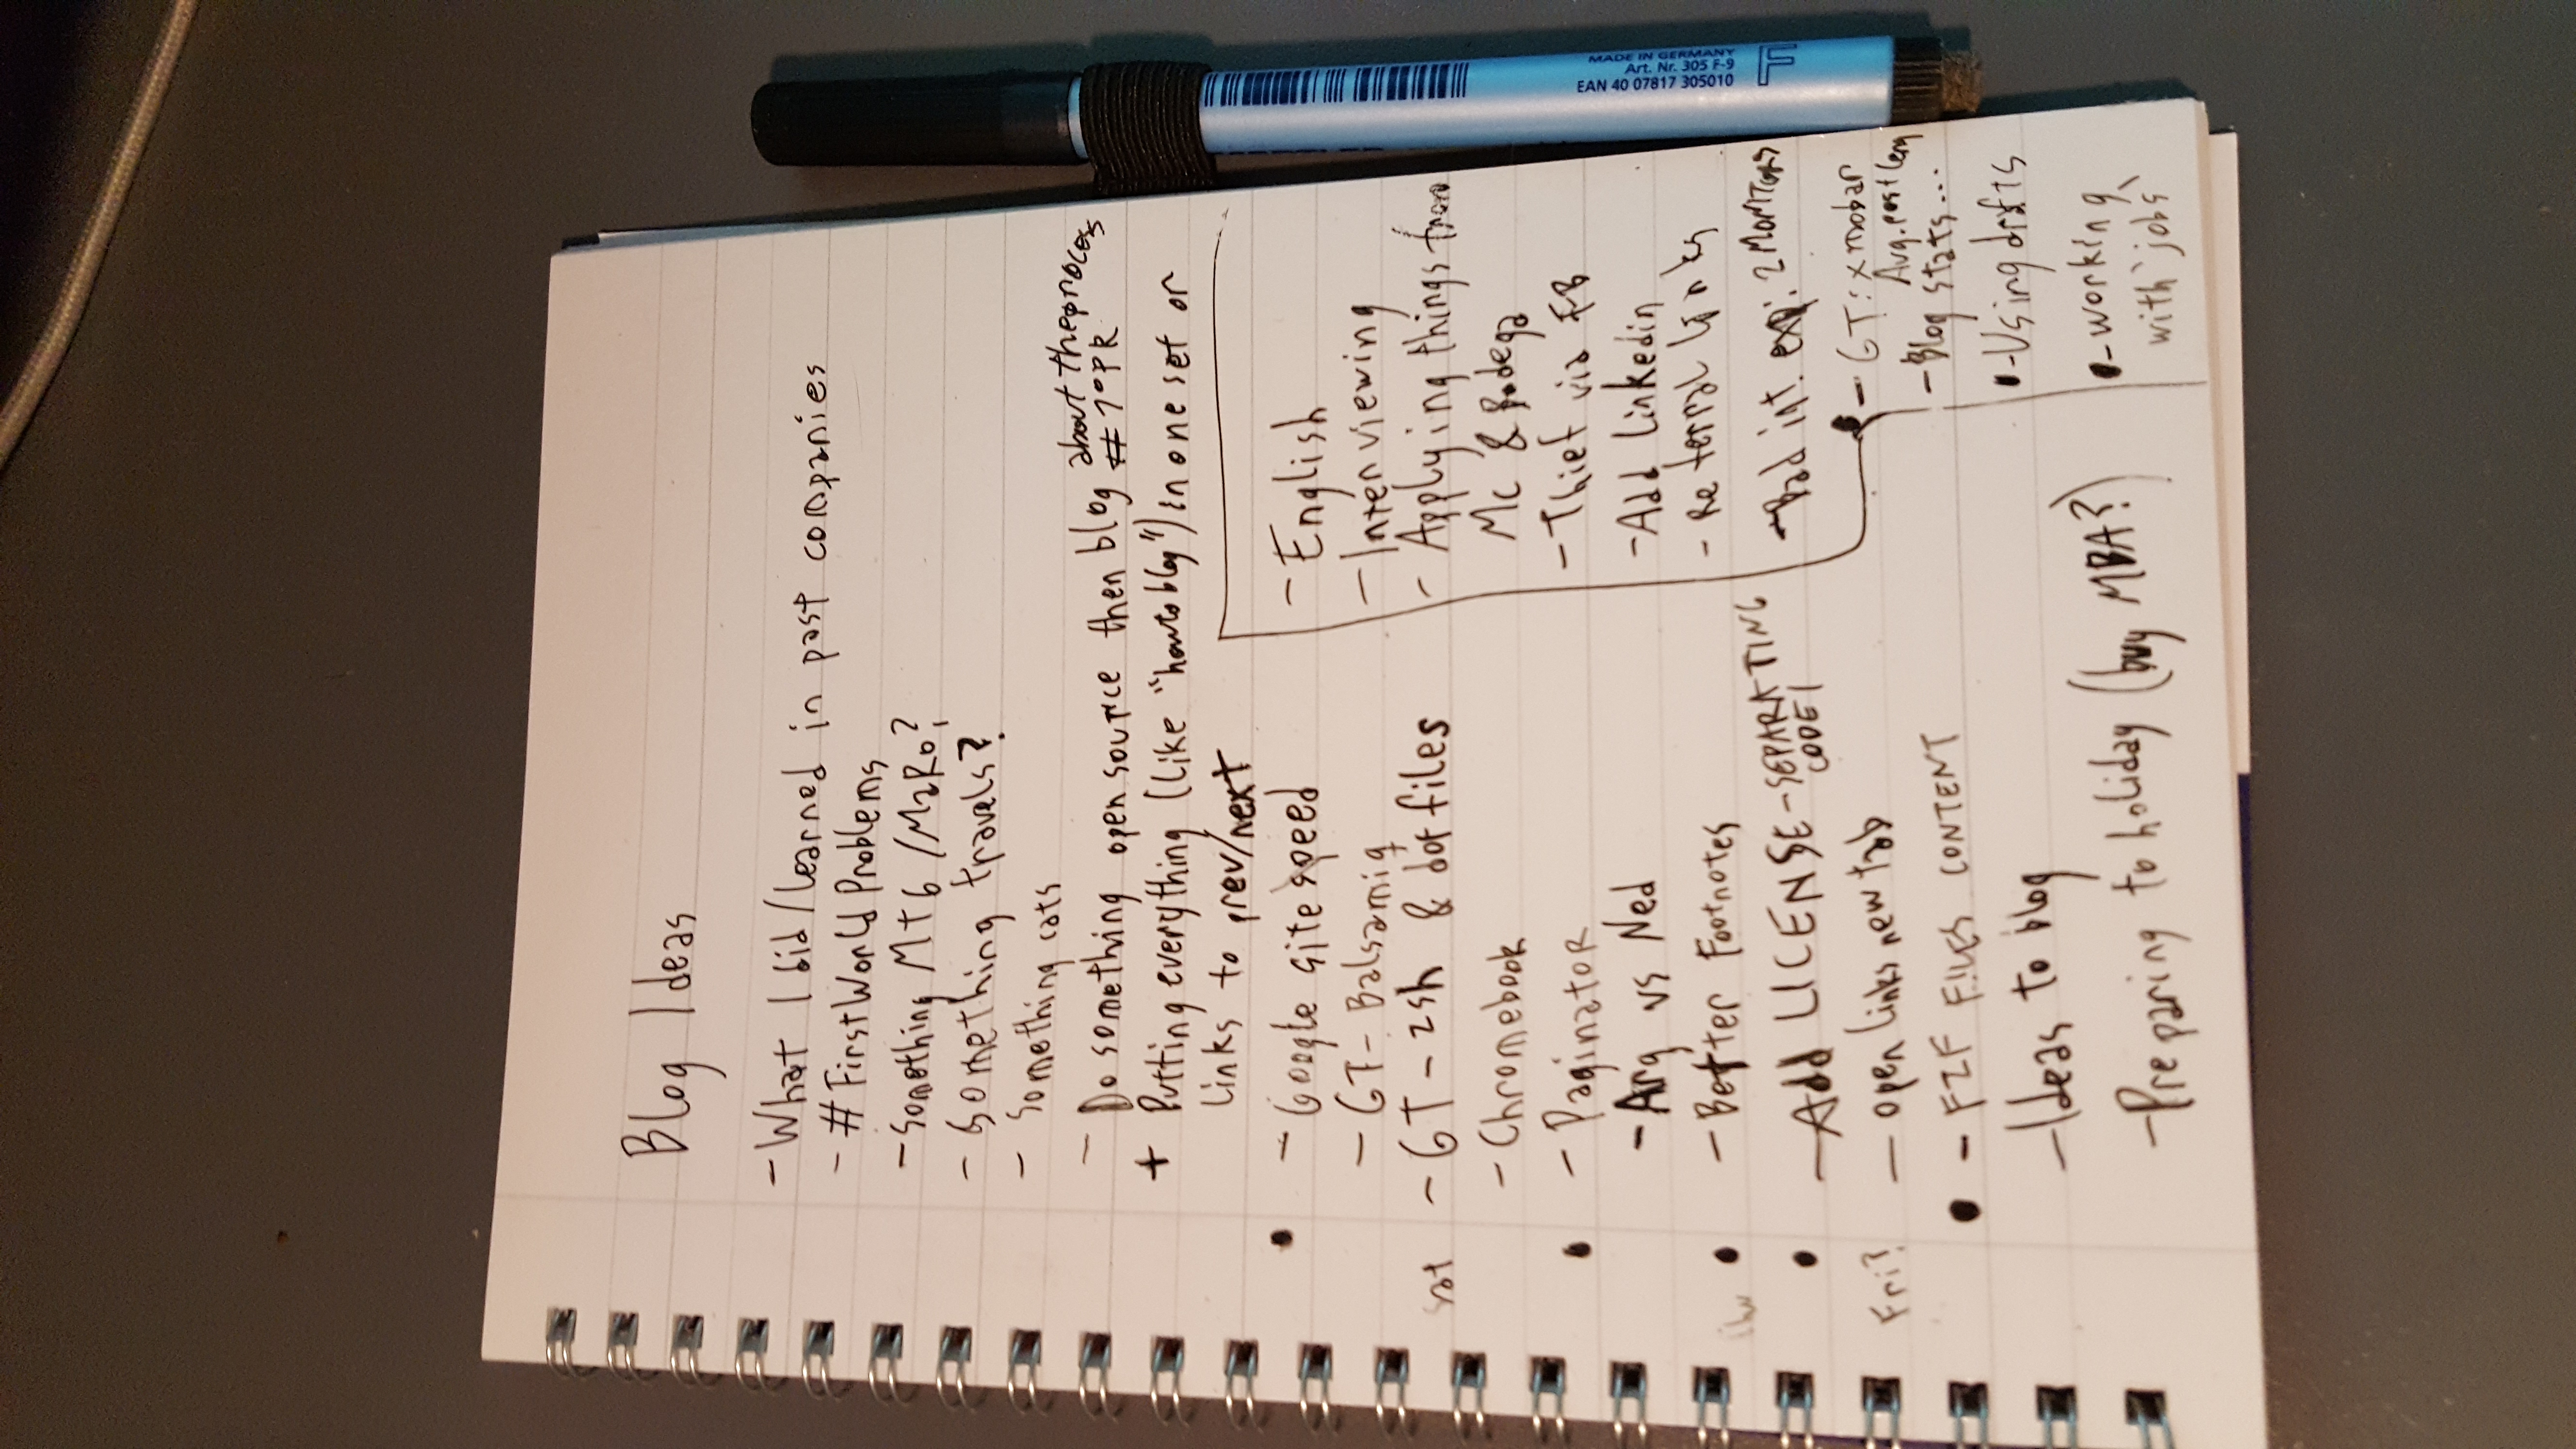 Blog Ideas
- What I did/learned in past companies
- #FirstWorldProblems
- Something MT6 /MaRo?
- Something travels?
- Something cats
- Do something open source then blog about the process
# 1°PR
+ Putting everything (like "how to blog") in one set or
links to prev/next
• - Google site speed
- GT - Balsamiq
Sat - GT - zsh & dotfiles
- Chromebook
• - Paginator
- Arg vs Ned
• - Better Footnotes
• - Add LICENSE - SEPARATING
CODE!
Fri? - open links new tab
• - FZF FILES CONTENT
- Ideas to blog
- Preparing to holiday (buy MBA?)
- English
- Interviewing
- Applying things from
Mc & Bodega
- Thief via FB
- Add linkedin
- Referral links
- Bad int. exp: 2 MONITORS
• - GT: xmobar
- Blog stats... Avg. post leng
• - Using drafts
• - working
with `jobs`
MADE IN GERMANY
Art. Nr. 305 F-9
EAN 40 07817 305010
F